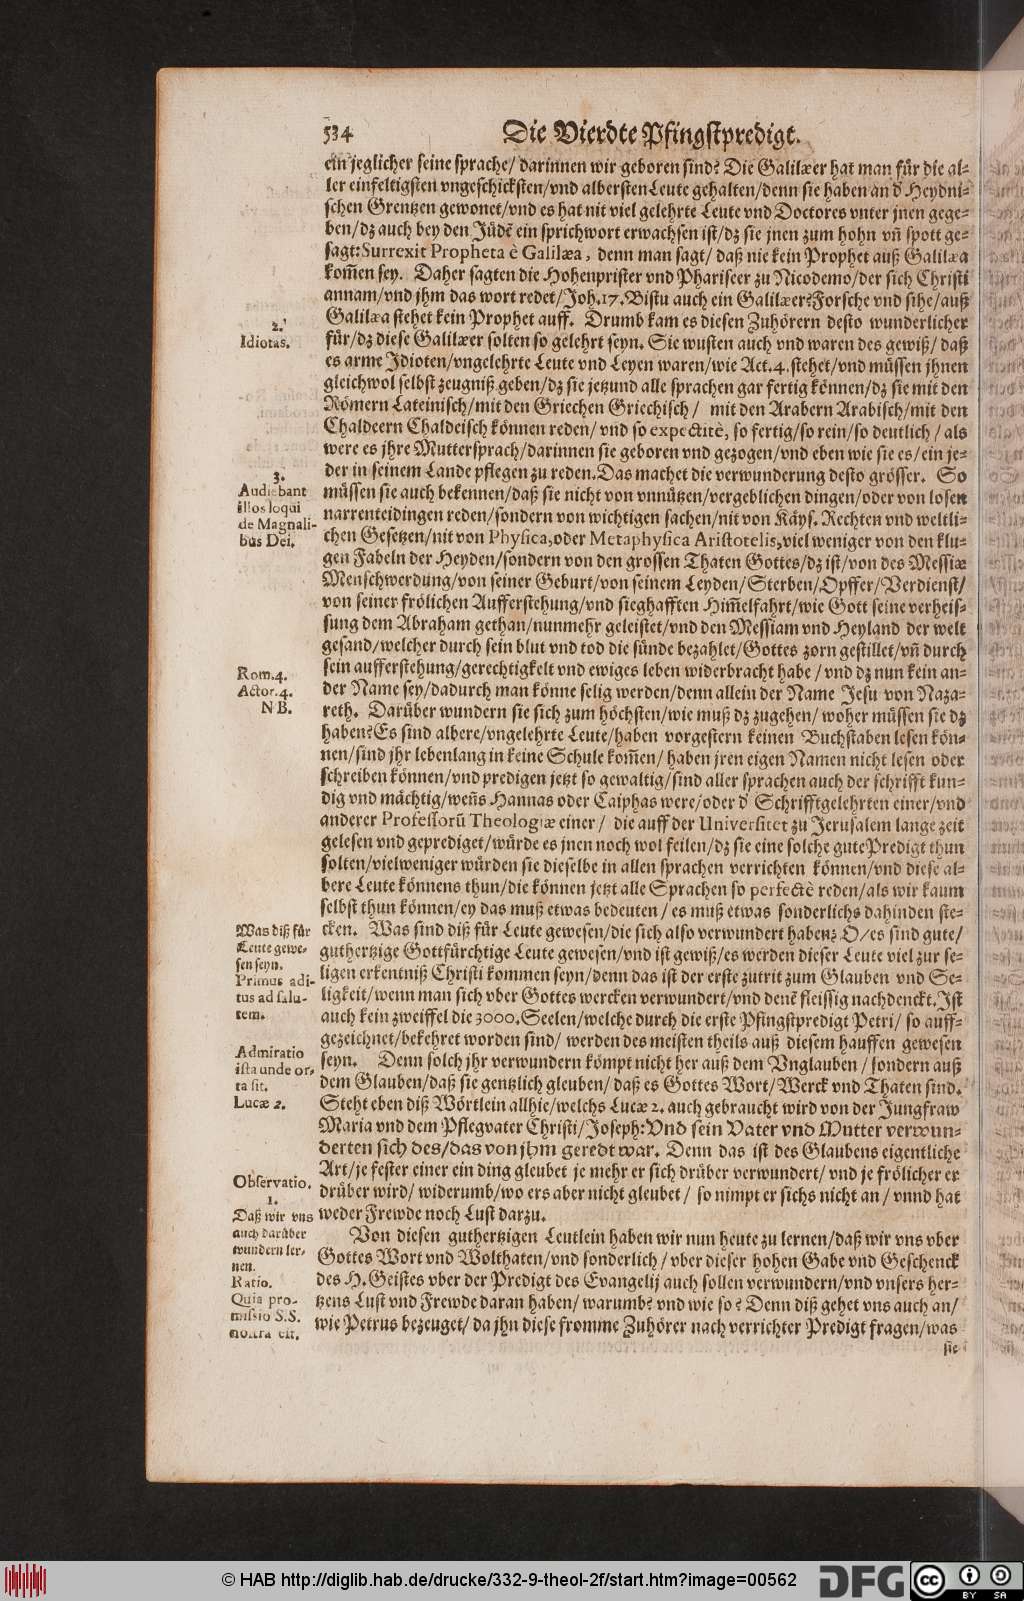 534 Die Vierdte Pfingstpredigt.
ein jeglicher seine sprache/ darinnen wir geboren sind? Die Galilæer hat man für die al-
ler einfeltigsten vngeschicksten/vnd albersten Leute gehalten/denn sie haben an d̕ Heydni-
schen Grentzen gewonet/vnd es hat nit viel gelehrte Leute vnd Doctores vnter jnen gege-
ben/dz auch bey den Jüdẽ ein sprichwort erwachsen ist/dz sie jnen zum hohn vñ spott ge-
sagt: Surrexit Propheta è Galilæa, denn man sagt/ daß nie kein Prophet auß Galilæa
kom̃en sey. Daher sagten die Hohenprister vnd Phariseer zu Nicodemo/der sich Christi
annam/vnd jhm das wort redet/Joh.17.Bistu auch ein Galilæer?Forsche vnd sihe/auß
Galilæa stehet kein Prophet auff. Drumb kam es diesen Zuhörern desto wunderlicher
2.
Idiotas.
für/dz diese Galilæer solten so gelehrt seyn. Sie wusten auch vnd waren des gewiß/ daß
es arme Idioten/vngelehrte Leute vnd Leyen waren/wie Act.4.stehet/vnd müssen jhnen
gleichwol selbst zeugniß geben/dz sie jetzund alle sprachen gar fertig können/dz sie mit den
Römern Lateinisch/mit den Griechen Griechisch/ mit den Arabern Arabisch/mit den
Chaldeern Chaldeisch können reden/ vnd so expeditè, so fertig/so rein/so deutlich/ als
were es jhre Muttersprach/darinnen sie geboren vnd gezogen/vnd eben wie sie es/ein je-
der in seinem Lande pflegen zu reden.Das machet die verwunderung desto grösser. So
3.
Audiebant
illos loqui
de Magnali-
bus Dei.
müssen sie auch bekennen/daß sie nicht von vnnützen/vergeblichen dingen/oder von losen
narrenteidingen reden/sondern von wichtigen sachen/nit von Käys. Rechten vnd weltli-
chen Gesetzen/nit von Physica,oder Metaphysica Aristotelis,viel weniger von den klu-
gen Fabeln der Heyden/sondern von den grossen Thaten Gottes/dz ist/von des Messiæ
Menschwerdung/von seiner Geburt/von seinem Leyden/Sterben/Opffer/Verdienst/
von seiner frölichen Aufferstehung/vnd sieghafften Him̃elfahrt/wie Gott seine verheis-
sung dem Abraham gethan/nunmehr geleistet/vnd den Messiam vnd Heyland der welt
gesand/welcher durch sein blut vnd tod die sünde bezahlet/Gottes zorn gestillet/vñ durch
Rom.4.
Actor.4.
N B.
sein aufferstehung/gerechtigkeit vnd ewiges leben widerbracht habe/ vnd dz nun kein an-
der Name sey/dadurch man könne selig werden/denn allein der Name Jesu von Naza-
reth. Darüber wundern sie sich zum höchsten/wie muß dz zugehen/ woher müssen sie dz
haben?Es sind albere/vngelehrte Leute/haben vorgestern keinen Buchstaben lesen kön-
nen/sind jhr lebenlang in keine Schule kom̃en/ haben jren eigen Namen nicht lesen oder
schreiben können/vnd predigen jetzt so gewaltig/sind aller sprachen auch der schrifft kun-
dig vnd mächtig/weñs Hannas oder Caiphas were/oder d̕ Schrifftgelehrten einer/vnd
anderer Professorũ Theologiæ einer/ die auff der Universitet zu Jerusalem lange zeit
gelesen vnd geprediget/würde es jnen noch wol feilen/dz sie eine solche gute Predigt thun
solten/vielweniger würden sie dieselbe in allen sprachen verrichten können/vnd diese al-
bere Leute könnens thun/die können jetzt alle Sprachen so perfectè reden/als wir kaum
selbst thun können/ey das muß etwas bedeuten/ es muß etwas sonderlichs dahinden ste-
Was diß für
Leute gewe-
sen seyn.
Primus adi-
tus ad salu-
tem.
cken. Was sind diß für Leute gewesen/die sich also verwundert haben? O/es sind gute/
guthertzige Gottfürchtige Leute gewesen/vnd ist gewiß/es werden dieser Leute viel zur se-
ligen erkentniß Christi kommen seyn/denn das ist der erste zutrit zum Glauben vnd Se-
ligkeit/wenn man sich vber Gottes wercken verwundert/vnd denẽ fleissig nachdenckt.Ist
auch kein zweiffel die 3000.Seelen/welche durch die erste Pfingstpredigt Petri/ so auff-
gezeichnet/bekehret worden sind/ werden des meisten theils auß diesem hauffen gewesen
Admiratio
ista unde or-
ta sit.
Lucæ 2.
seyn. Denn solch jhr verwundern kömpt nicht her auß dem Vnglauben/ sondern auß
dem Glauben/daß sie gentzlich gleuben/ daß es Gottes Wort/Werck vnd Thaten sind.
Steht eben diß Wörtlein allhie/welchs Lucæ 2. auch gebraucht wird von der Jungfraw
Maria vnd dem Pflegvater Christi/Joseph:Vnd sein Vater vnd Mutter verwun-
derten sich des/das von jhm geredt war. Denn das ist des Glaubens eigentliche
Art/je fester einer ein ding gleubet je mehr er sich drüber verwundert/ vnd je frölicher er
drüber wird/ widerumb/wo ers aber nicht gleubet/ so nimpt er sichs nicht an/ vnnd hat
weder Frewde noch Lust darzu.
Observatio.
1.
Daß wir vns
auch darüber
wundern ler-
nen.
Ratio.
Quia pro-
missio S.S.
nostra est.
Von diesen guthertzigen Leutlein haben wir nun heute zu lernen/daß wir vns vber
Gottes Wort vnd Wolthaten/vnd sonderlich/ vber dieser hohen Gabe vnd Geschenck
des H. Geistes vber der Predigt des Evangelij auch sollen verwundern/vnd vnsers her-
tzens Lust vnd Frewde daran haben/ warumb? vnd wie so? Denn diß gehet vns auch an/
wie Petrus bezeuget/ da jhn diese fromme Zuhörer nach verrichter Predigt fragen/was
sie
© HAB http://diglib.hab.de/drucke/332-9-theol-2f/start.htm?image=00562
DFG
cc
BY SA